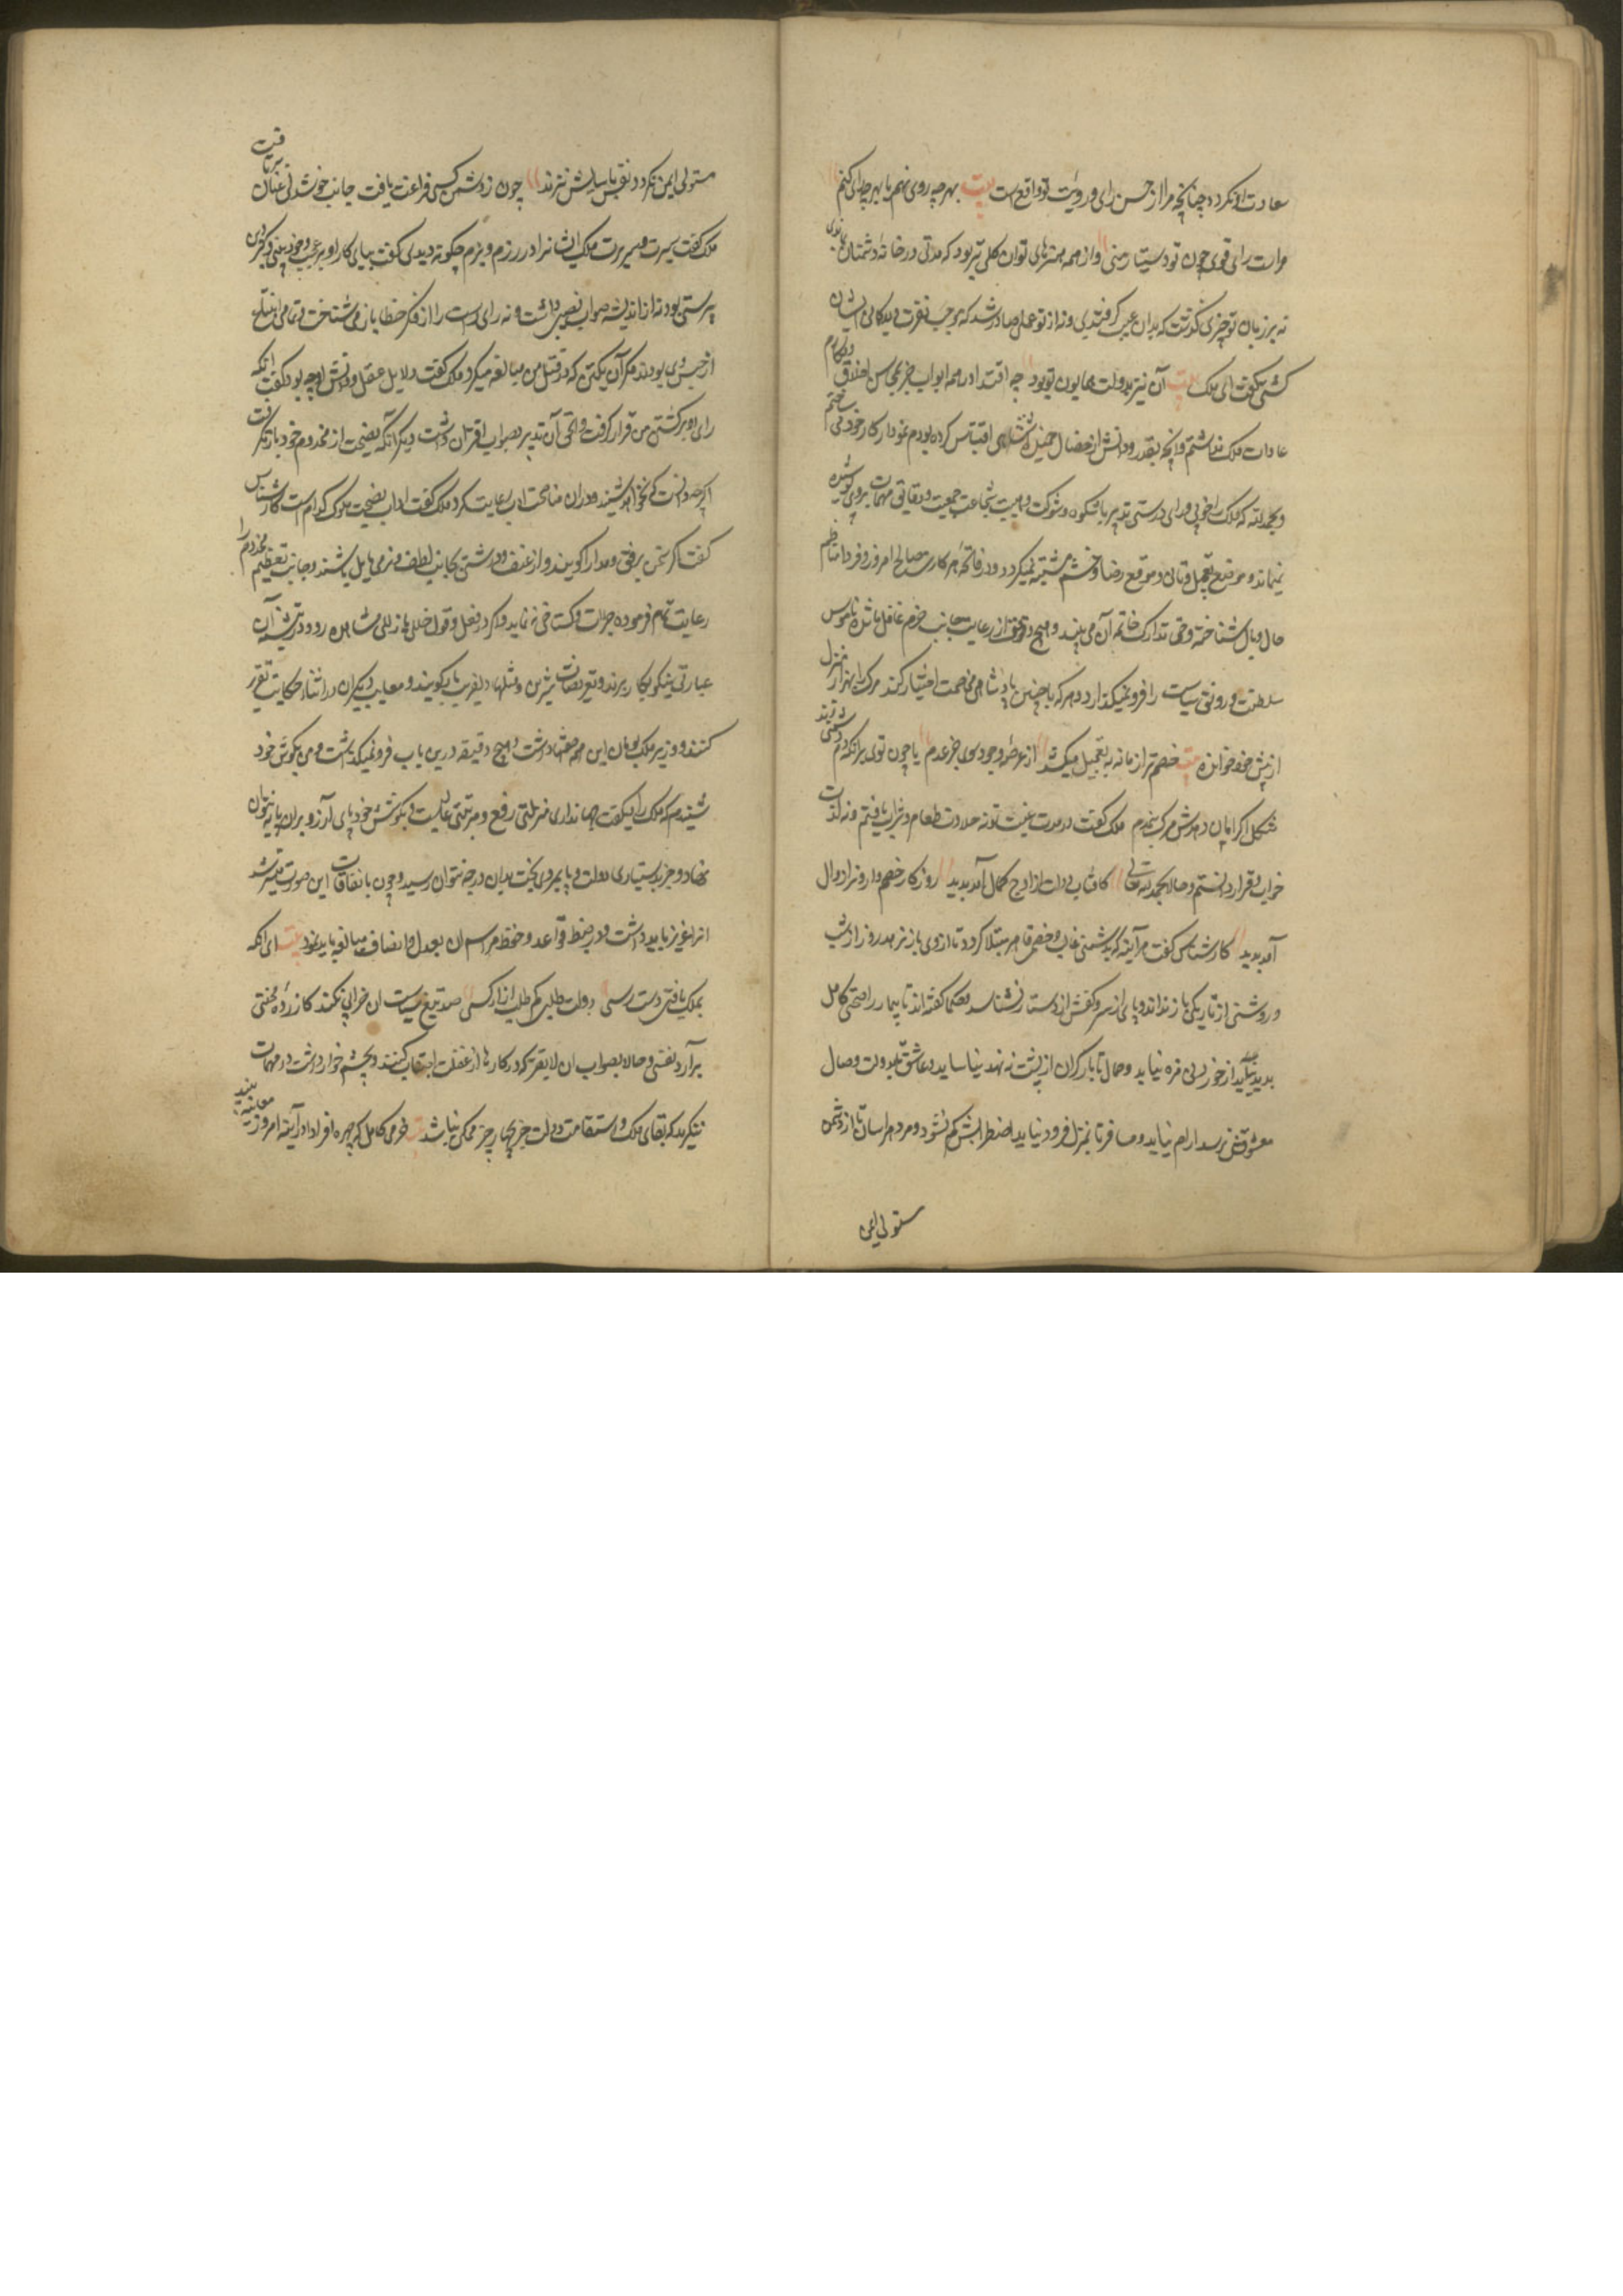 سعادت او نکرده چنانچه مرا از حسن رای و رویت تو واقع است بیت بهرچه روی نهم یا بهرچه رای کنم
مراست رای قوی چون تو دستیار منی و از همه هنرهای تو آن کلی تر بود که مدتی در خانه دشمنان بودی
نه بر زبان تو چیزی گذشت که بدان عیب گرفتندی و نه از تو عملی صادر شد که موجب نفرت و بدگمانی ایشان
گشتی گفت ای ملک آن نیز بدولت همایون تو بود چه اقتدا در همه ابواب جز بمحاسن اخلاق و مکارم
عادات ملک نداشتم و آنچه بقدر دانش از خصال شاهنشاهی اقتباس کرده بودم نمودار کار خود می ساختم
و بحمد لله که ملک را خوبی رای و درستی تدبیر با شکوه و شوکت و هیبت و شجاعت جمعیت و دقایق مهمات بروی پوشیده
نمیماند و موضع تعجیل و تانی و موقع رضا و خشم مشتبه نمیگردد و در فاتحه هر کاری مصالح امروز و فردا مناظم
حال و مآل شناخته وجه تدارک خاتمه آن می بیند و هیچ وقت از رعایت جانب حزم غافل باشد ناموس
سلطنت و رونق سیاست را فرو نمیگذارد و هرکه با چنین پادشاهی مخاصمت اختیار کند مرگ را بهزار منزل
از پیش خود خوانده بیت خصم ترا زمانه به تعجیل میکشد از عرصه وجود سوی عدم یا چون توی برانکه دم دشمنی زند
مشکل اگر امان دهدش مرگ نیم دم ملک گفت در مدت غیبت تو نه حلاوت طعام و شراب یافتم و نه لذت
خواب و قرار دانستم و حالا بحمد الله تعالی کافتاب دولت از اوج کمال آمد پدید روزگار خصم دارو نرا زوال
آمد پدید کارشناس گفت هر آینه که بدشمنی غالب و خصمی قاهر مبتلا گردد تا از وی باز نرهد روز از شب
و روشنی از تاریکی باز نداند و پای از سر و کفش از دستار نشناسد و حکما گفته اند تا بیمار را صحتی کامل
پدید نیاید از خوردنی مزه نیابد و حمال تا بار گران از پشت ننهد نیاساید و عاشق تا بدولت وصال
معشوقش نرسد آرام نیابد و مسافر تا بمنزل فرود نیاید اضطرابش کم نشود و مردم هراسان تا از دشمن
مستولی ایمن
مستولی ایمن نگردد نفس بآسایش نزند چون ز دشمن کسی فراغت یافت جانب خوشدلی عنان برتافت
ملک گفت سیرت و سریرت ملک ایشانرا در رزم و بزم چگونه دیدی گفت بنای کار او بر عجب و خودبینی و
پرستی بود نه از اندیشه صواب نصیبی داشت و نه رای راست را از فکر خطا باز می شناخت و تمامی اتباع
از جنس وی بودند مگر آن یکتن که در قتل من مبالغه میکرد ملک گفت دلایل عقل و دانش او چه بود گفت آنکه
رای او بر کشتن من قرار گرفت و الحق آن تدبیر بصواب اقتران داشت دیگر آنکه نصیحت از مخدوم خود باز نگرفت
اگرچه دانست که نخواهد شنید و دران مناصحت ادب رعایت کرد ملک گفت آداب نصیحت ملوک کدام است کارشناس
گفت آنکه سخن برفق و مدارا گویند و از عنف و درشتی بجانب لطف و نرمی مایل باشند و جانب تعظیم مخدوم را
رعایت تمام فرموده جرات و گستاخی ننماید و اگر در فعل و قول خللی یا زللی مشاهده رود در تنبیه آن
عبارتی نیکو بکار برند و تعریضات شیرین و مثلهای دلفریب باز گویند و معایب دیگران در اثناء حکایت تقریر
کنند و وزیر ملک بومان این همه صفتها داشت و هیچ دقیقه درین باب فرو نمیگذاشت و من بگوش خود
شنیدم که ملک را میگفت جهانداری منزلتی رفیع و مرتبتی عالیست و بکوشش خود پای آرزو بران پایه نتوان
نهاد و جز بدستیاری دولت و پایمردی بخت بدان درجه نتوان رسید و چون باتفاقات این صورت میسر شد
آنرا عزیز باید داشت و در ضبط قواعد و حفظ مراسم آن بعدل و انصاف مبالغه باید نمود بیت ای آنکه
بملک یافتی دست رسی دولت طلبی کم طلب آزار کسی صد تیغ سیاست آن خرابی نکند کازرده محنتی
برآرد نفسی و حالا بصواب آن لایقتر که در کارها از غفلت اجتناب کنند و بچشم خوار داشت در مهمات
ننگرند که بقای ملک و استقامت دولت جز بچهار چیز ممکن نباشد حزمی کامل که چهره فردا در آینه امروز معاینه بیند